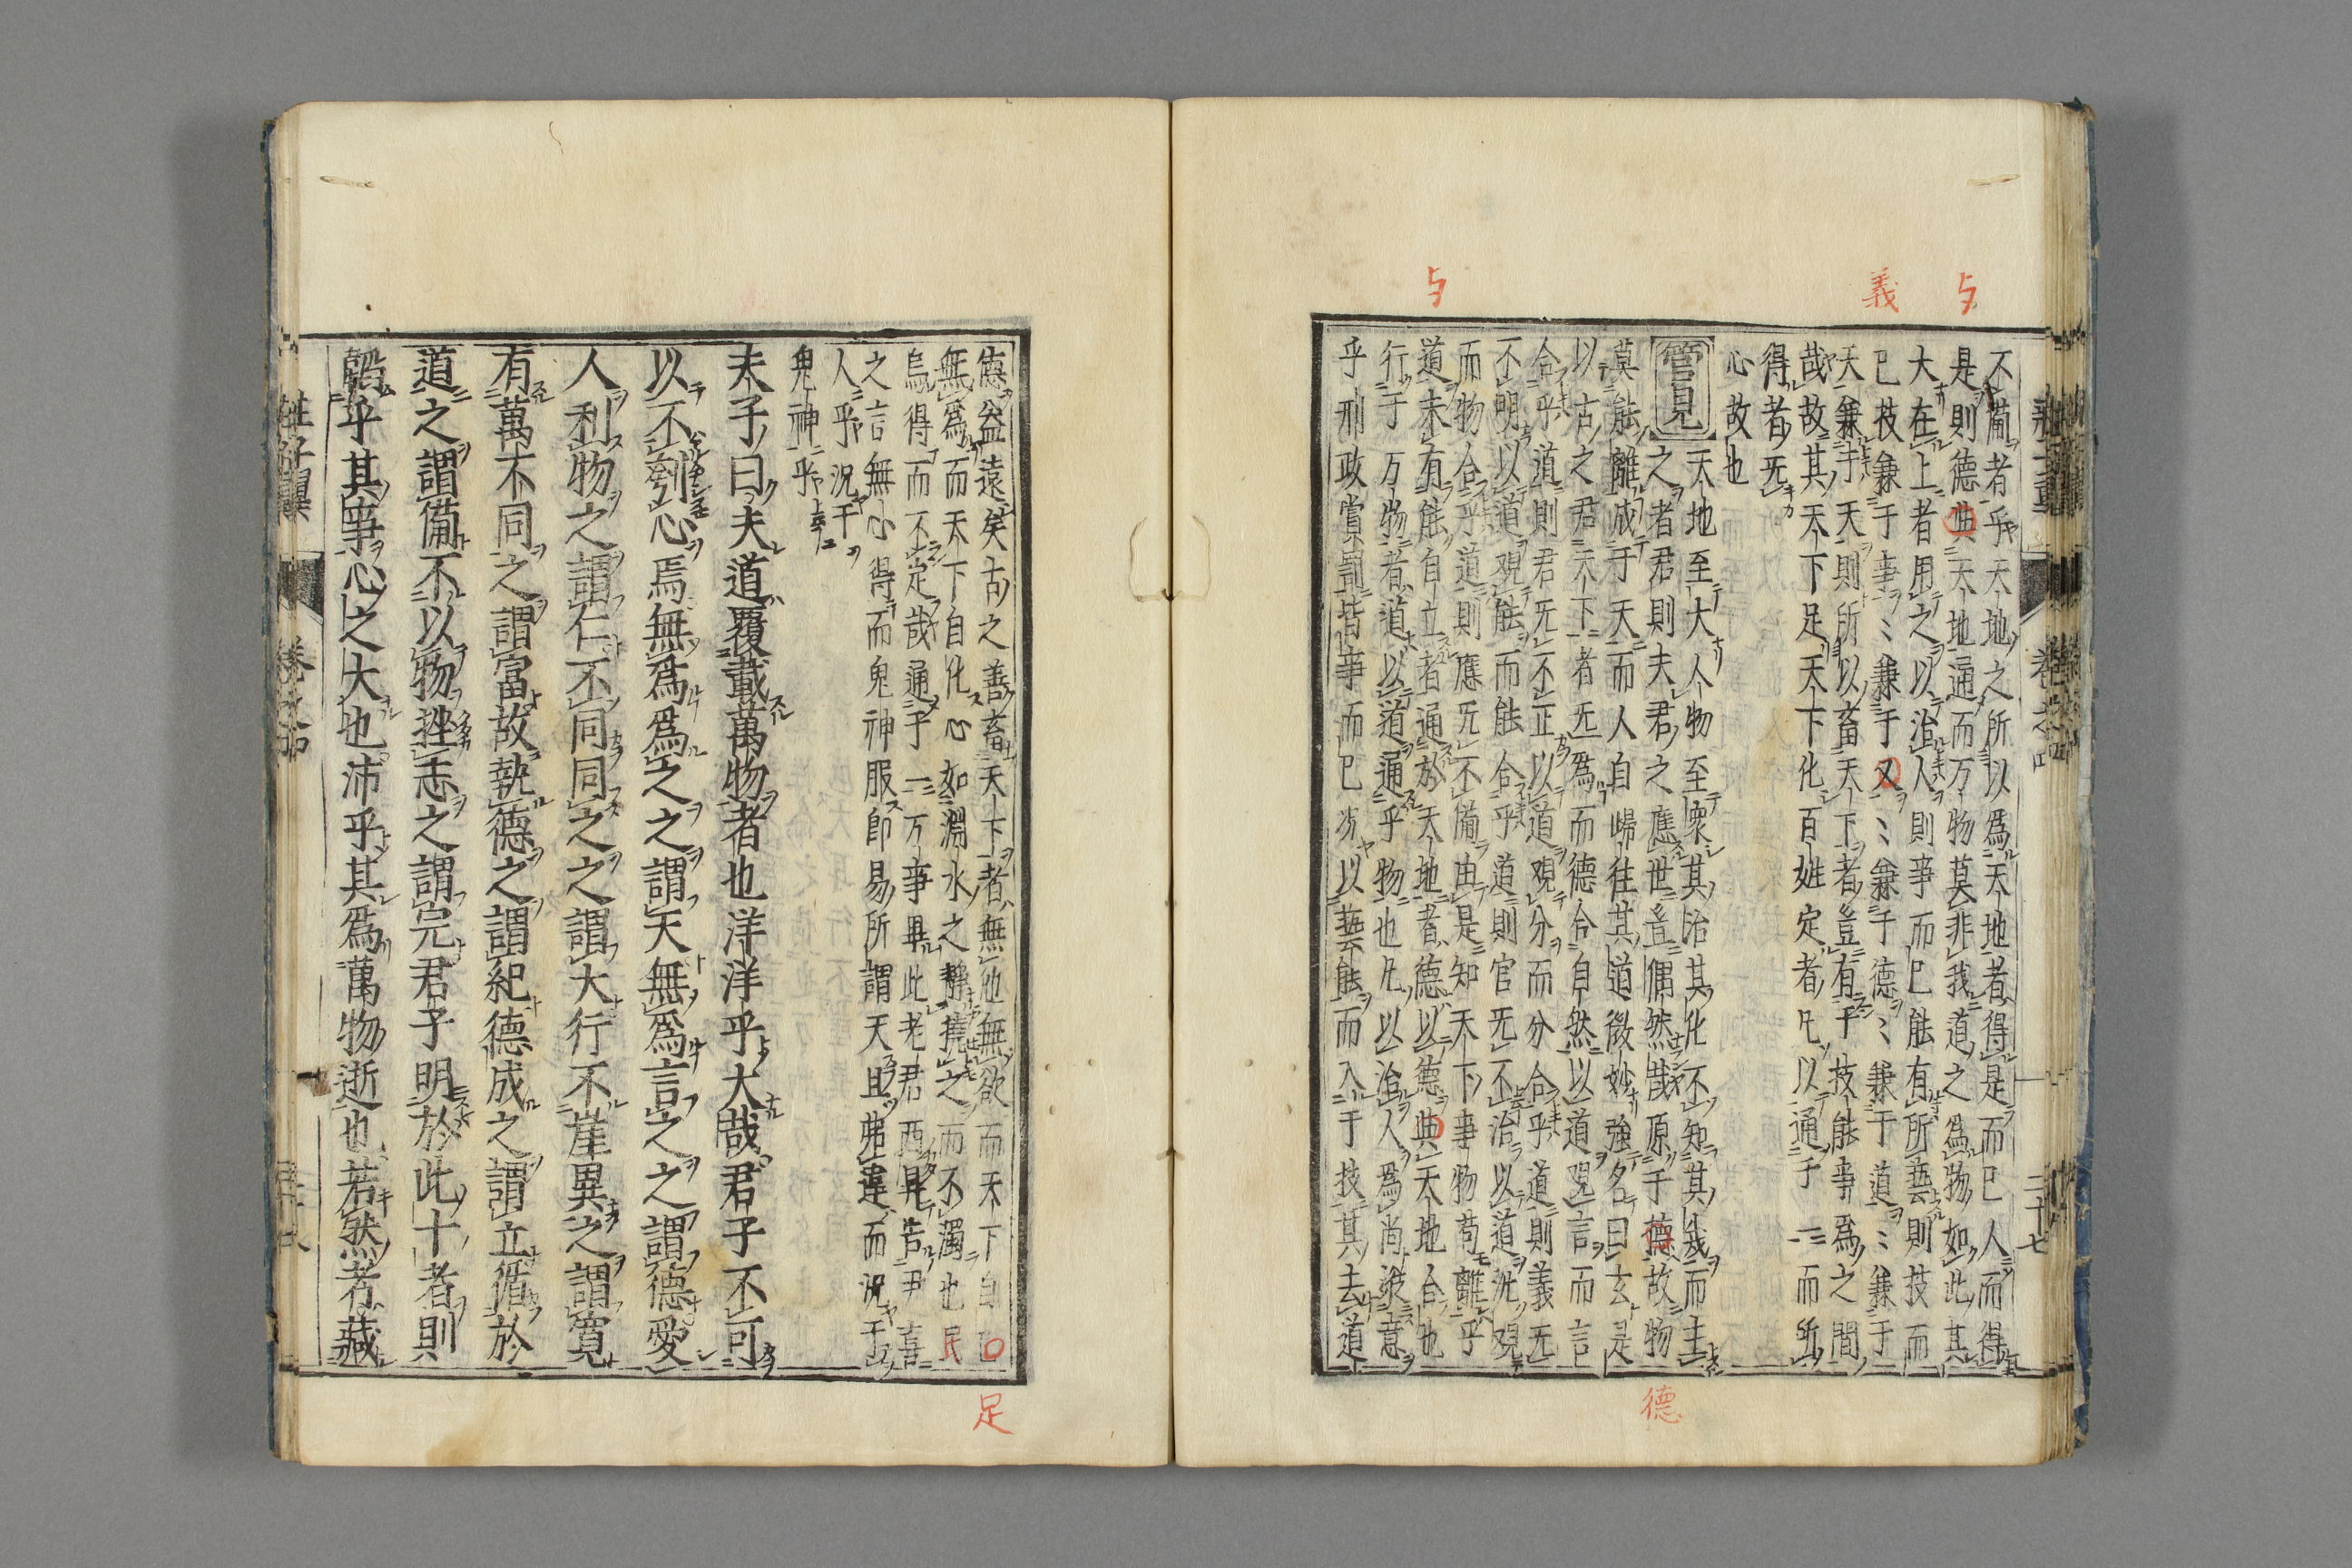 不備者乎天地之所以為天地者得是而已人而得
是則德典天地通而万物莫非我道之為物如此其
大在上者用之以治人則事而已能有所藝則技而
已技兼于事〻兼于又〻兼于德〻兼于道〻兼于
天兼于天則所以畜天下者豈有于技能事為之間
哉故其天下足天下化百姓定者凡以通于一而所
得者无
心故也
管見 天地至大人物至衆其治其化不知其幾而主
之者君則夫君之應世豈偶然哉原于德故物
莫能離成于天而人自歸往其道微妙強名曰玄是
以古之君天下者无為而德合自然以道覌言而言
合乎道則君无不正以道覌分而分合乎道則義无
不明以道覌能而能合乎道則官无不治以道汎覌
而物合乎道則應无不備由是知天下事物苟離乎
道未有能自立者通於天地者德以德典天地合也
行于万物者道以道通乎物也凡以治人為尚涉意
乎刑政賞罰皆事而已况以藝能而入于技其去道
德益遠矣古之善畜天下者無他無欲而天下自
無為而天下自化心如淵水之靜撓之而不濁也民
烏得而不定哉通于一万事畢此老君西昇告尹喜
之言無心得而鬼神服即易所謂天且弗違而況于
人乎況于
鬼神乎
夫子曰夫道覆載萬物者也洋洋乎大哉君子不可
以不刳心焉無為為之之謂天無為言之之謂德愛
人利物之謂仁不同同之之謂大行不崖異之謂寬
有萬不同之謂富故執德之謂紀德成之謂立循於
道之謂備不以物挫志之謂完君子明於此十者則
韜乎其事心之大也沛乎其為萬物逝也若然者藏
与
義
与
德
足
民
卷之四
二十七